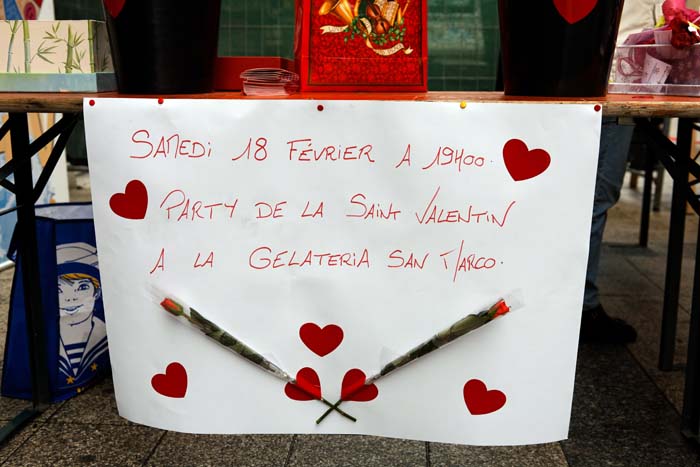 SAMEDI 18 FÉVRIER A 19H00.
PARTY DE LA SAINT VALENTIN
A LA GELATERIA SAN MARCO.